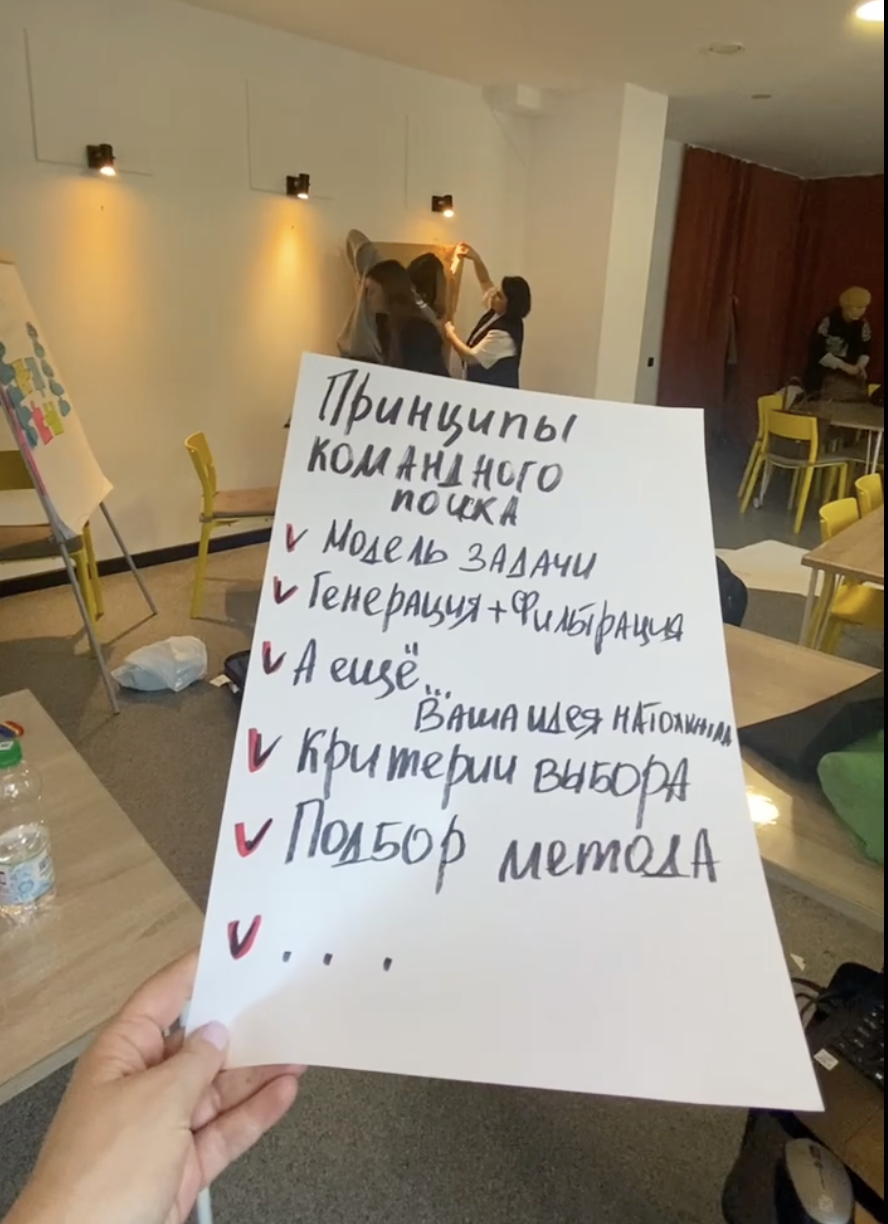 Принципы
командного
поика
Модель задачи
Генерация + Фильтрация
А ещё...
Ваша идея натолкнула
Критерии выбора
Подбор метода
...